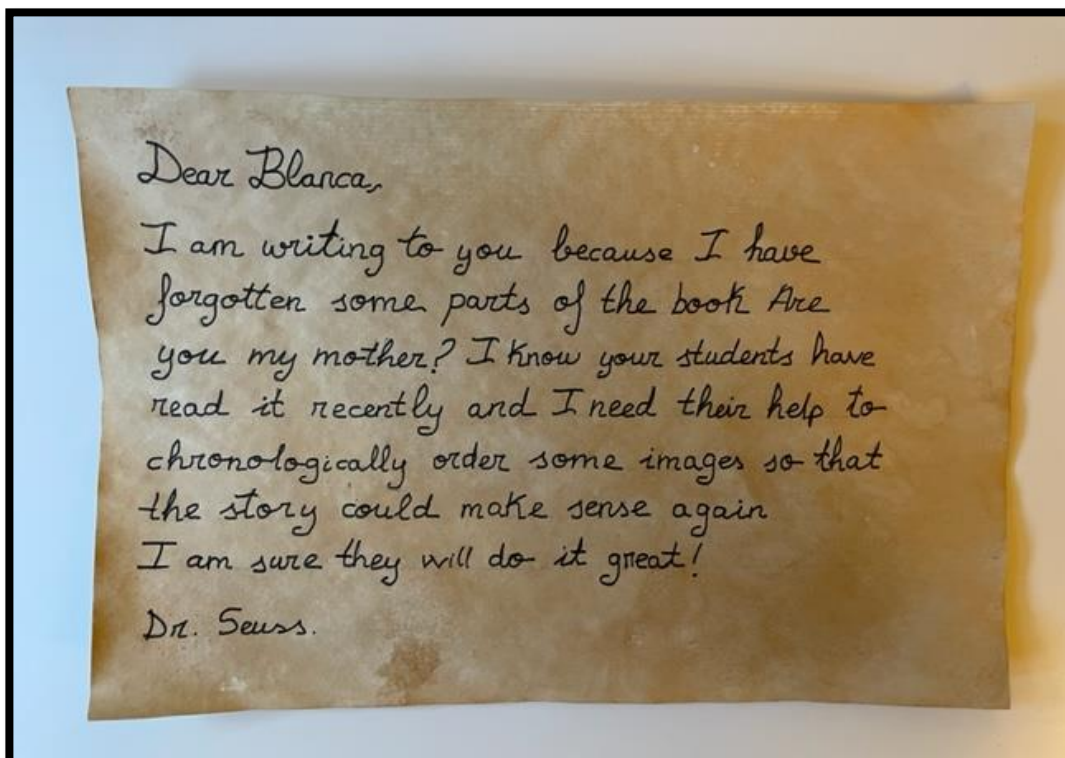 Dear Blanca,
I am writing to you because I have
forgotten some parts of the book Are
you my mother? I know your students have
read it recently and I need their help to
chronologically order some images so that
the story could make sense again
I am sure they will do it great!
Dr. Seuss.